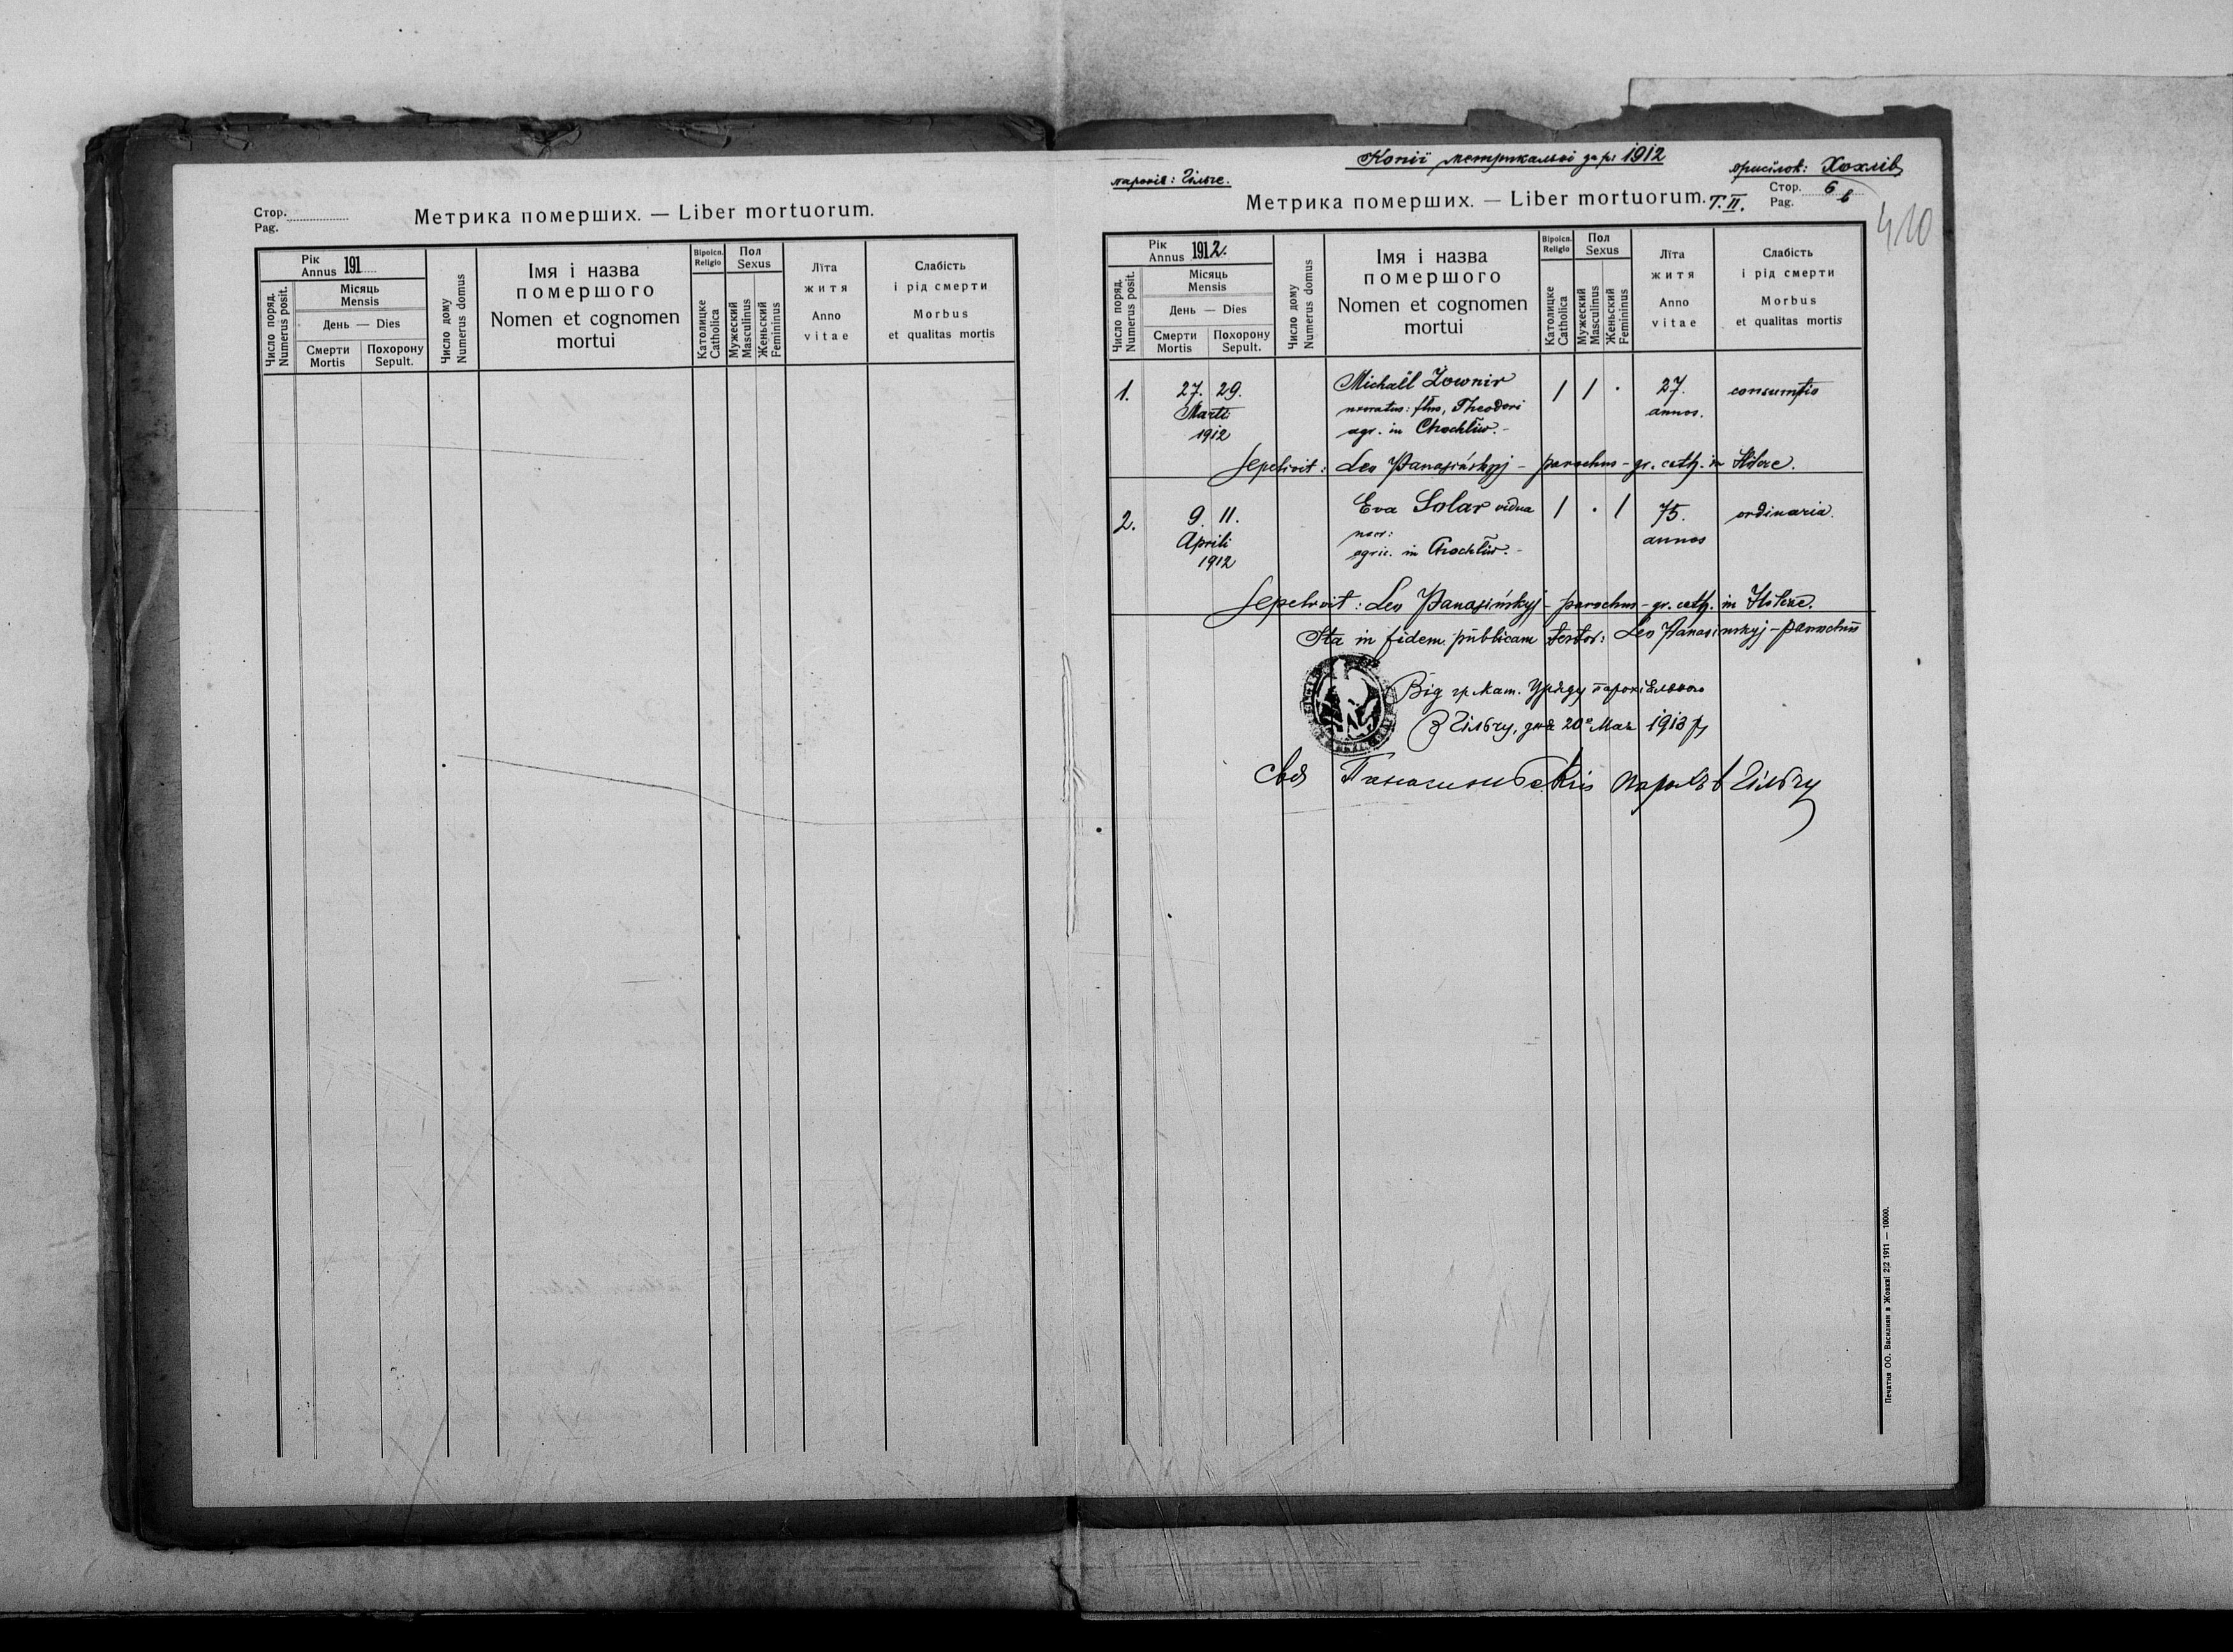 Стор.
Pag.
Метрика померших. — Liber mortuorum.
Рік
Annus 191
Місяць
Mensis
День — Dies
Смерти
Mortis
Похорону
Sepult.
Число поряд.
Numerus posit.
Число дому
Numerus domus
Імя і назва
помершого
Nomen et cognomen
mortui
Віроісп.
Religio
Католицке
Catholica
Пол
Sexus
Мужеский
Masculinus
Женьский
Femininus
Лїта
житя
Anno
vitae
Слабість
і рід смерти
Morbus
et qualitas mortis
Копії метрикальні за рі 1912
парохія: Гільче.
присїлок: Хохлів
Метрика померших. — Liber mortuorum. T. II.
Стор.
Pag. 6
410
Рік
Annus 1912.
Місяць
Mensis
День — Dies
Смерти
Mortis
Похорону
Sepult.
Число поряд.
Numerus posit.
Число дому
Numerus domus
Імя і назва
помершого
Nomen et cognomen
mortui
Віроісп.
Religio
Католицке
Catholica
Пол
Sexus
Мужеский
Masculinus
Женьский
Femininus
Лїта
житя
Anno
vitae
Слабість
і рід смерти
Morbus
et qualitas mortis
1. 27. 29. Michaël Żownir / / · 27. consumtio
Martii uxoratus: filius, Theodori annos.
1912 agr. in Chochliw. -
Sepelivit: Leo Panasińskyj - parochus - gr. cath. in Hilcze.
2. 9. 11. Eva Solar vidua / · / 75. ordinaria.
Aprili annos
1912 agric. in Chochliw. -
Sepelivit: Leo Panasińskyj - parochus - gr. cath. in Hilcze.
Ita in fidem publicam testor: Leo Panasinskyj - parochus
Від гр. кат. Уряду парохіяльного
В Гільчу, дня 20го Мая 1913 р
Лев Панасиньскій парох в Гільчу
Печатня ОО. Василиян в Жовкві 2|2 1911 — 10000.